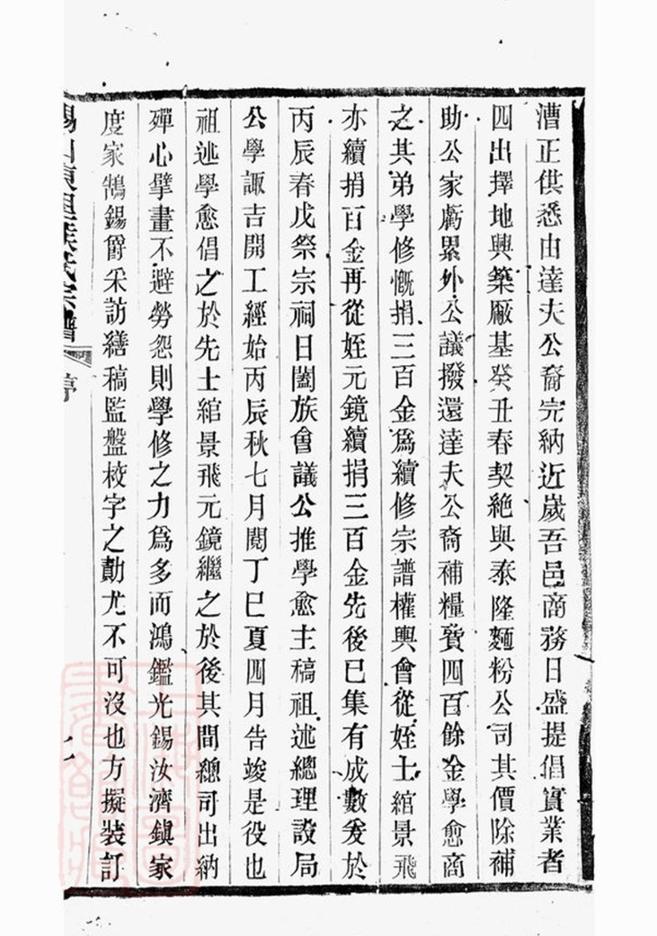 漕正供悉由達夫公裔完納近歲吾邑商務日盛提倡實業者
四出擇地興築廠基癸丑春契絶與泰隆麵粉公司其價除補
助公家虧累外公議撥還達夫公裔補糧費四百餘金學愈商
之其弟學修慨捐三百金爲續修宗譜權輿會從姪士綰景飛
亦續捐百金再從姪元鏡續捐三百金先後已集有成數爰於
丙辰春戊祭宗祠日闔族會議公推學愈主稿祖述總理設局
公學諏吉開工經始丙辰秋七月閱丁巳夏四月告竣是役也
祖述學愈倡之於先士綰景飛元鏡繼之於後其間總司出納
殫心擘畫不避勞怨則學修之力爲多而鴻鑑光錫汝濟鎮家
度家鵠錫爵采訪繕稿監盤校字之勩尤不可沒也方擬裝訂
氏宗譜
序